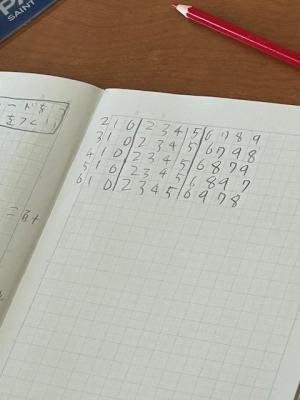 PA
SAINT
ードを
をつく
2 1 0 2 3 4 5 6 7 8 9
3 1 0 2 3 4 5 6 7 9 8
4 1 0 2 3 4 5 6 8 7 9
5 1 0 2 3 4 5 6 8 9 7
6 1 0 2 3 4 5 6 9 7 8